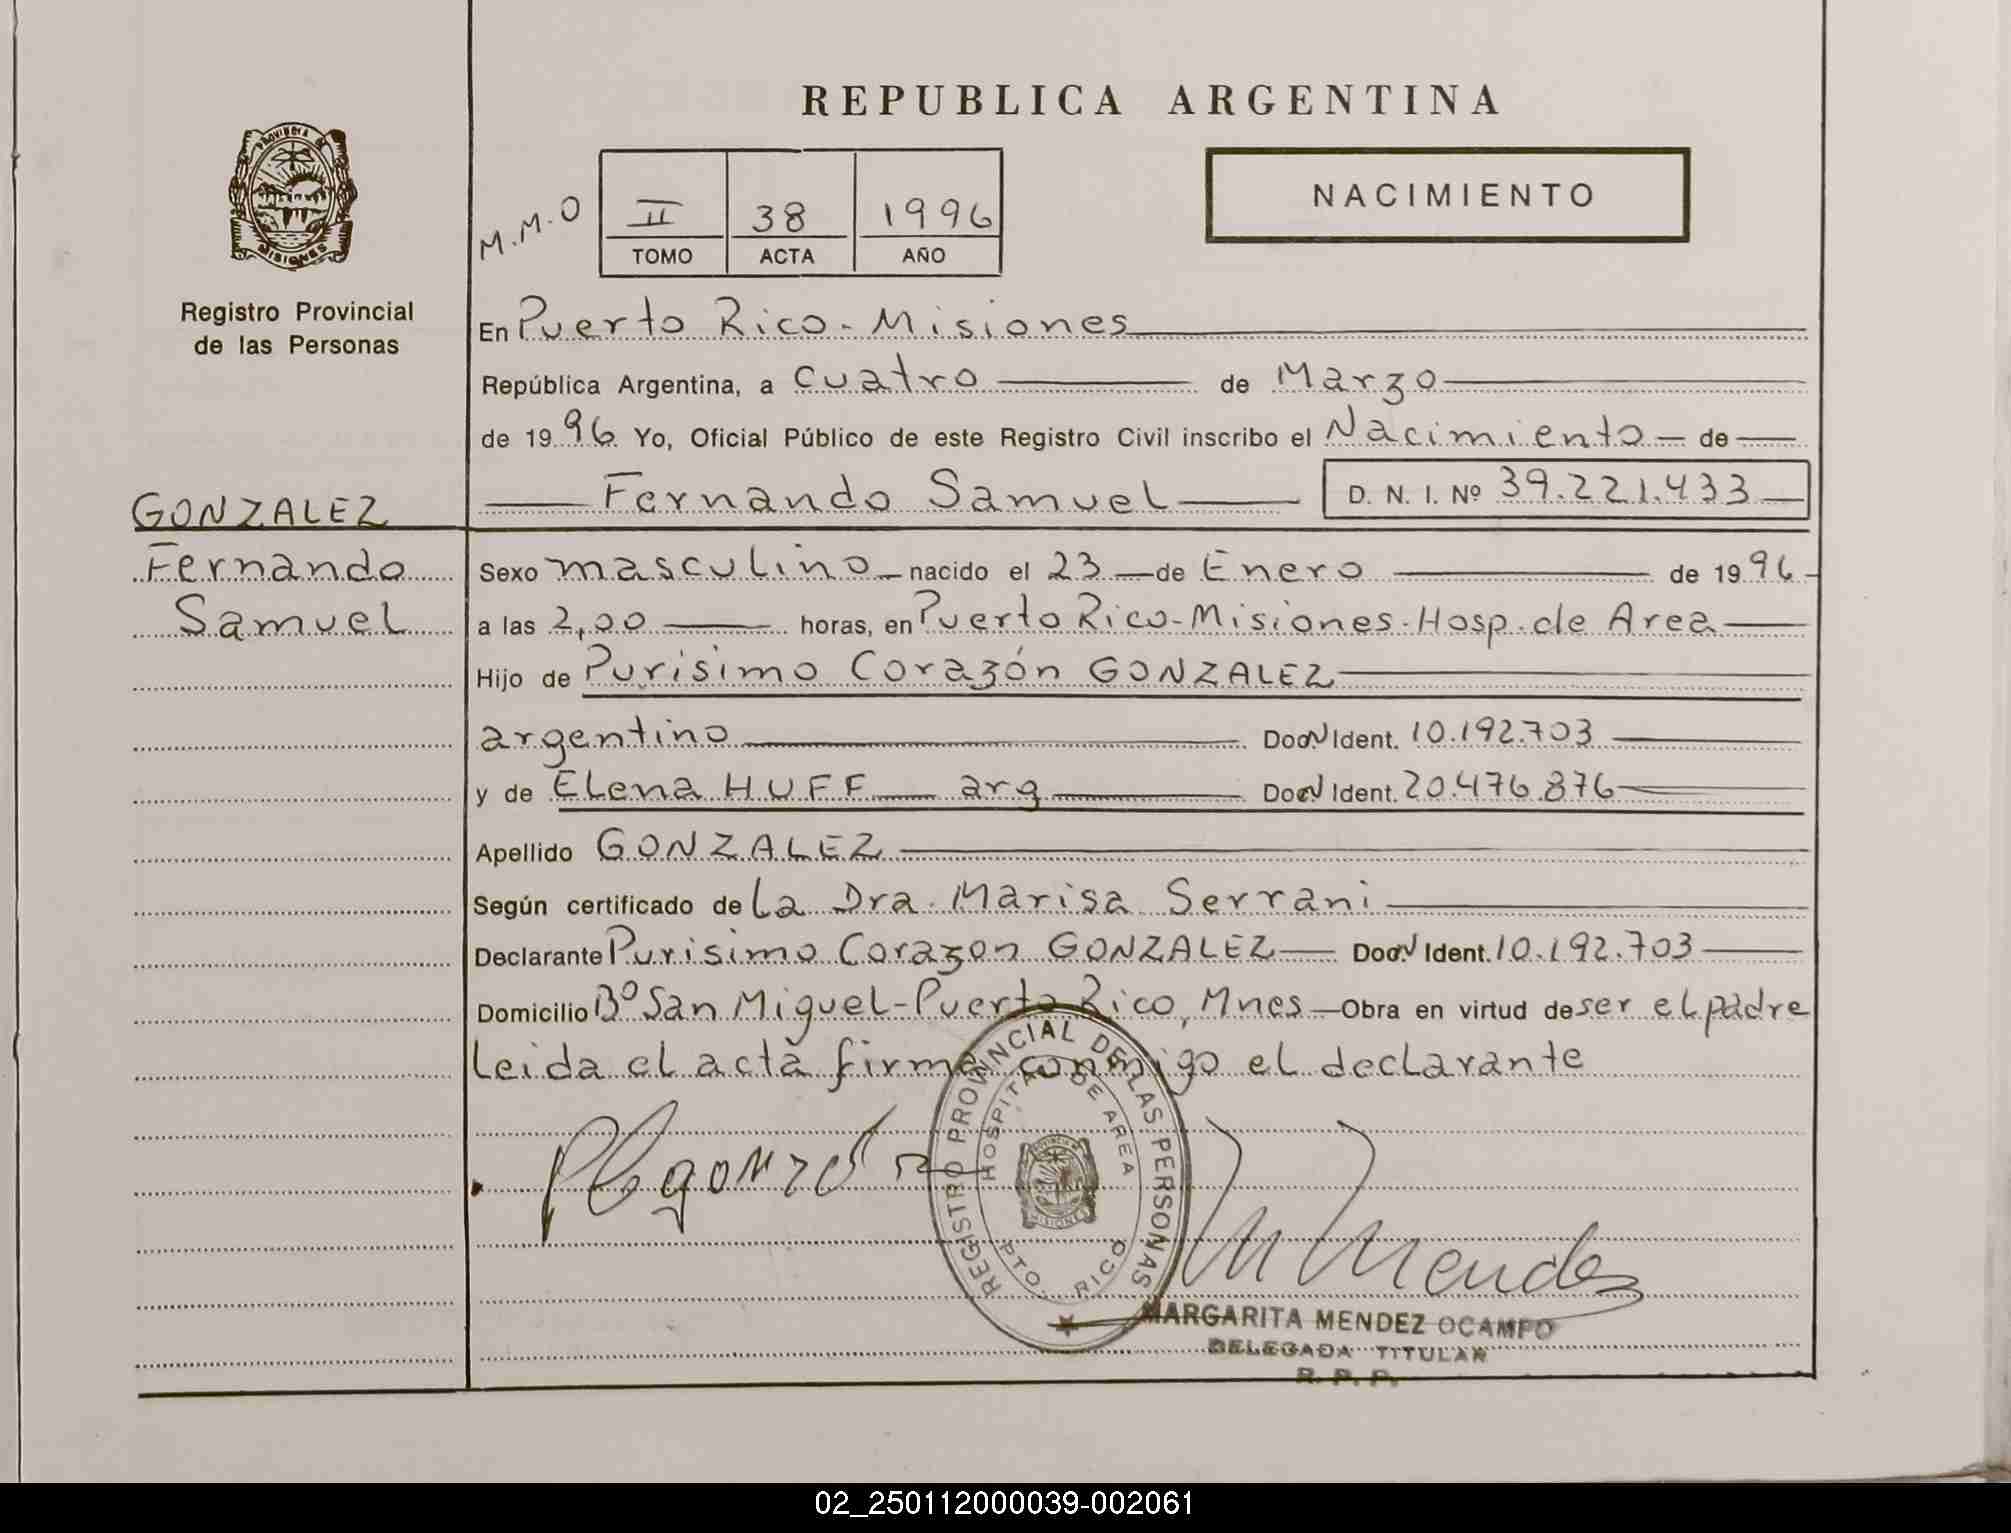 REPUBLICA ARGENTINA
PROVINCIA DE MISIONES
Registro Provincial
de las Personas
M.M.O
II 38 1996
TOMO ACTA AÑO
NACIMIENTO
En Puerto Rico - Misiones
República Argentina, a cuatro de Marzo
de 19 96 Yo, Oficial Público de este Registro Civil inscribo el Nacimiento de
Fernando Samuel D. N. I. Nº 39.221.433
GONZALEZ
Fernando
Samuel
Sexo masculino nacido el 23 de Enero de 19 96
a las 2,00 horas, en Puerto Rico - Misiones - Hosp. de Area
Hijo de Purisimo Corazón GONZALEZ
argentino Doc. Ident. 10.192.703
y de Elena HUFF arg Doc. Ident. 20.476.876
Apellido GONZALEZ
Según certificado de la Dra. Marisa Serrani
Declarante Purisimo Corazon GONZALEZ Doc. Ident. 10.192.703
Domicilio Bº San Miguel - Puerto Rico, Mnes Obra en virtud de ser el padre
leida el acta firma conmigo el declarante
REGISTRO PROVINCIAL DE LAS PERSONAS
HOSPITAL DE AREA
PTO. RICO
M Mendez
MARGARITA MENDEZ OCAMPO
DELEGADA TITULAR
R. P. P.
02_250112000039-002061